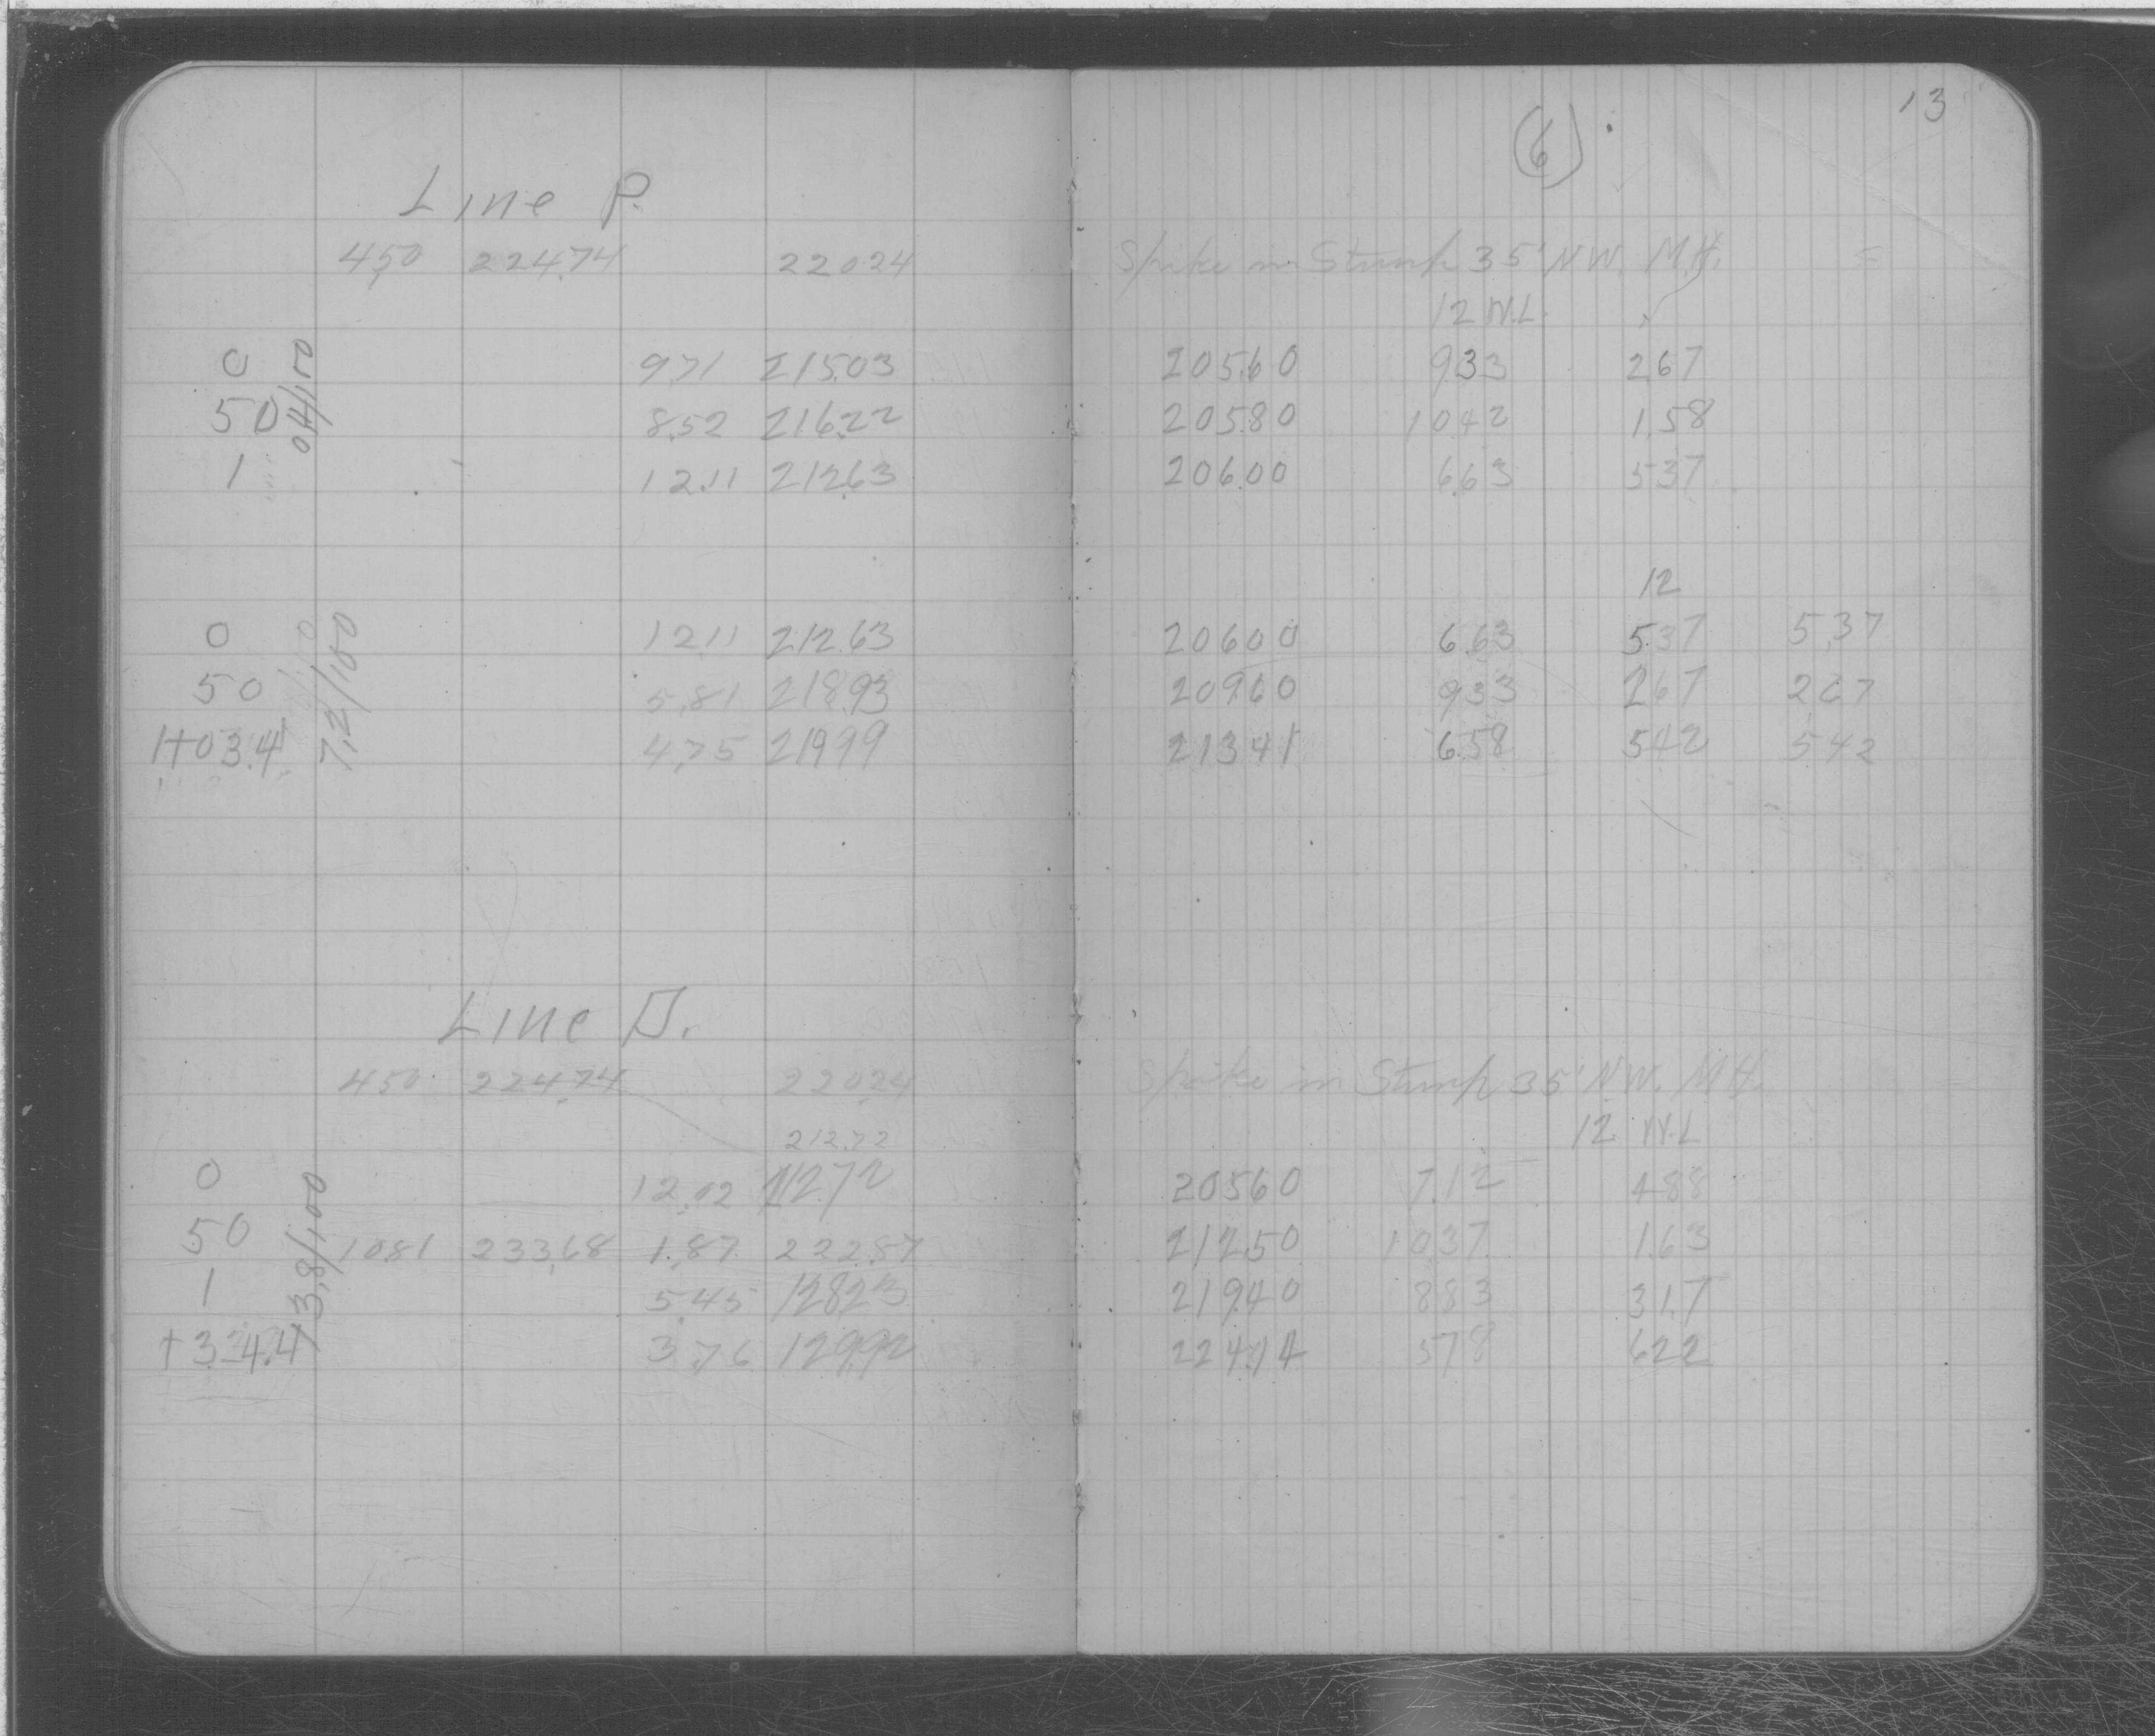 13
(6)
Line P.
4.50 224.74 220.24 Spike in Stump 35' N.W. M.H. =
12 W.L. ✓
0 9.71 215.03 205.60 9.33 2.67
50 8.52 216.22 205.80 10.42 1.58
1 12.11 212.63 206.00 6.63 5.37
0.4/100
12
0 12.11 212.63 206.00 6.63 5.37 5.37
50 5.81 218.93 209.60 9.33 2.67 2.67
1+03.4 4.75 219.99 213.41 6.58 5.42 5.42
7.2/100
4.50 224.74 220.24 Spike in Stump 35' N.W. M.H.
Line
212.72 12 W.L
0 12.02 212.72 205.60 7.12 4.88
50 10.81 233.68 1.87 222.87 212.50 10.37 1.63
1 5.45 128.23 219.40 8.83 3.17
+34.4 3.76 129.92 224.14 5.78 6.22
13.8/100